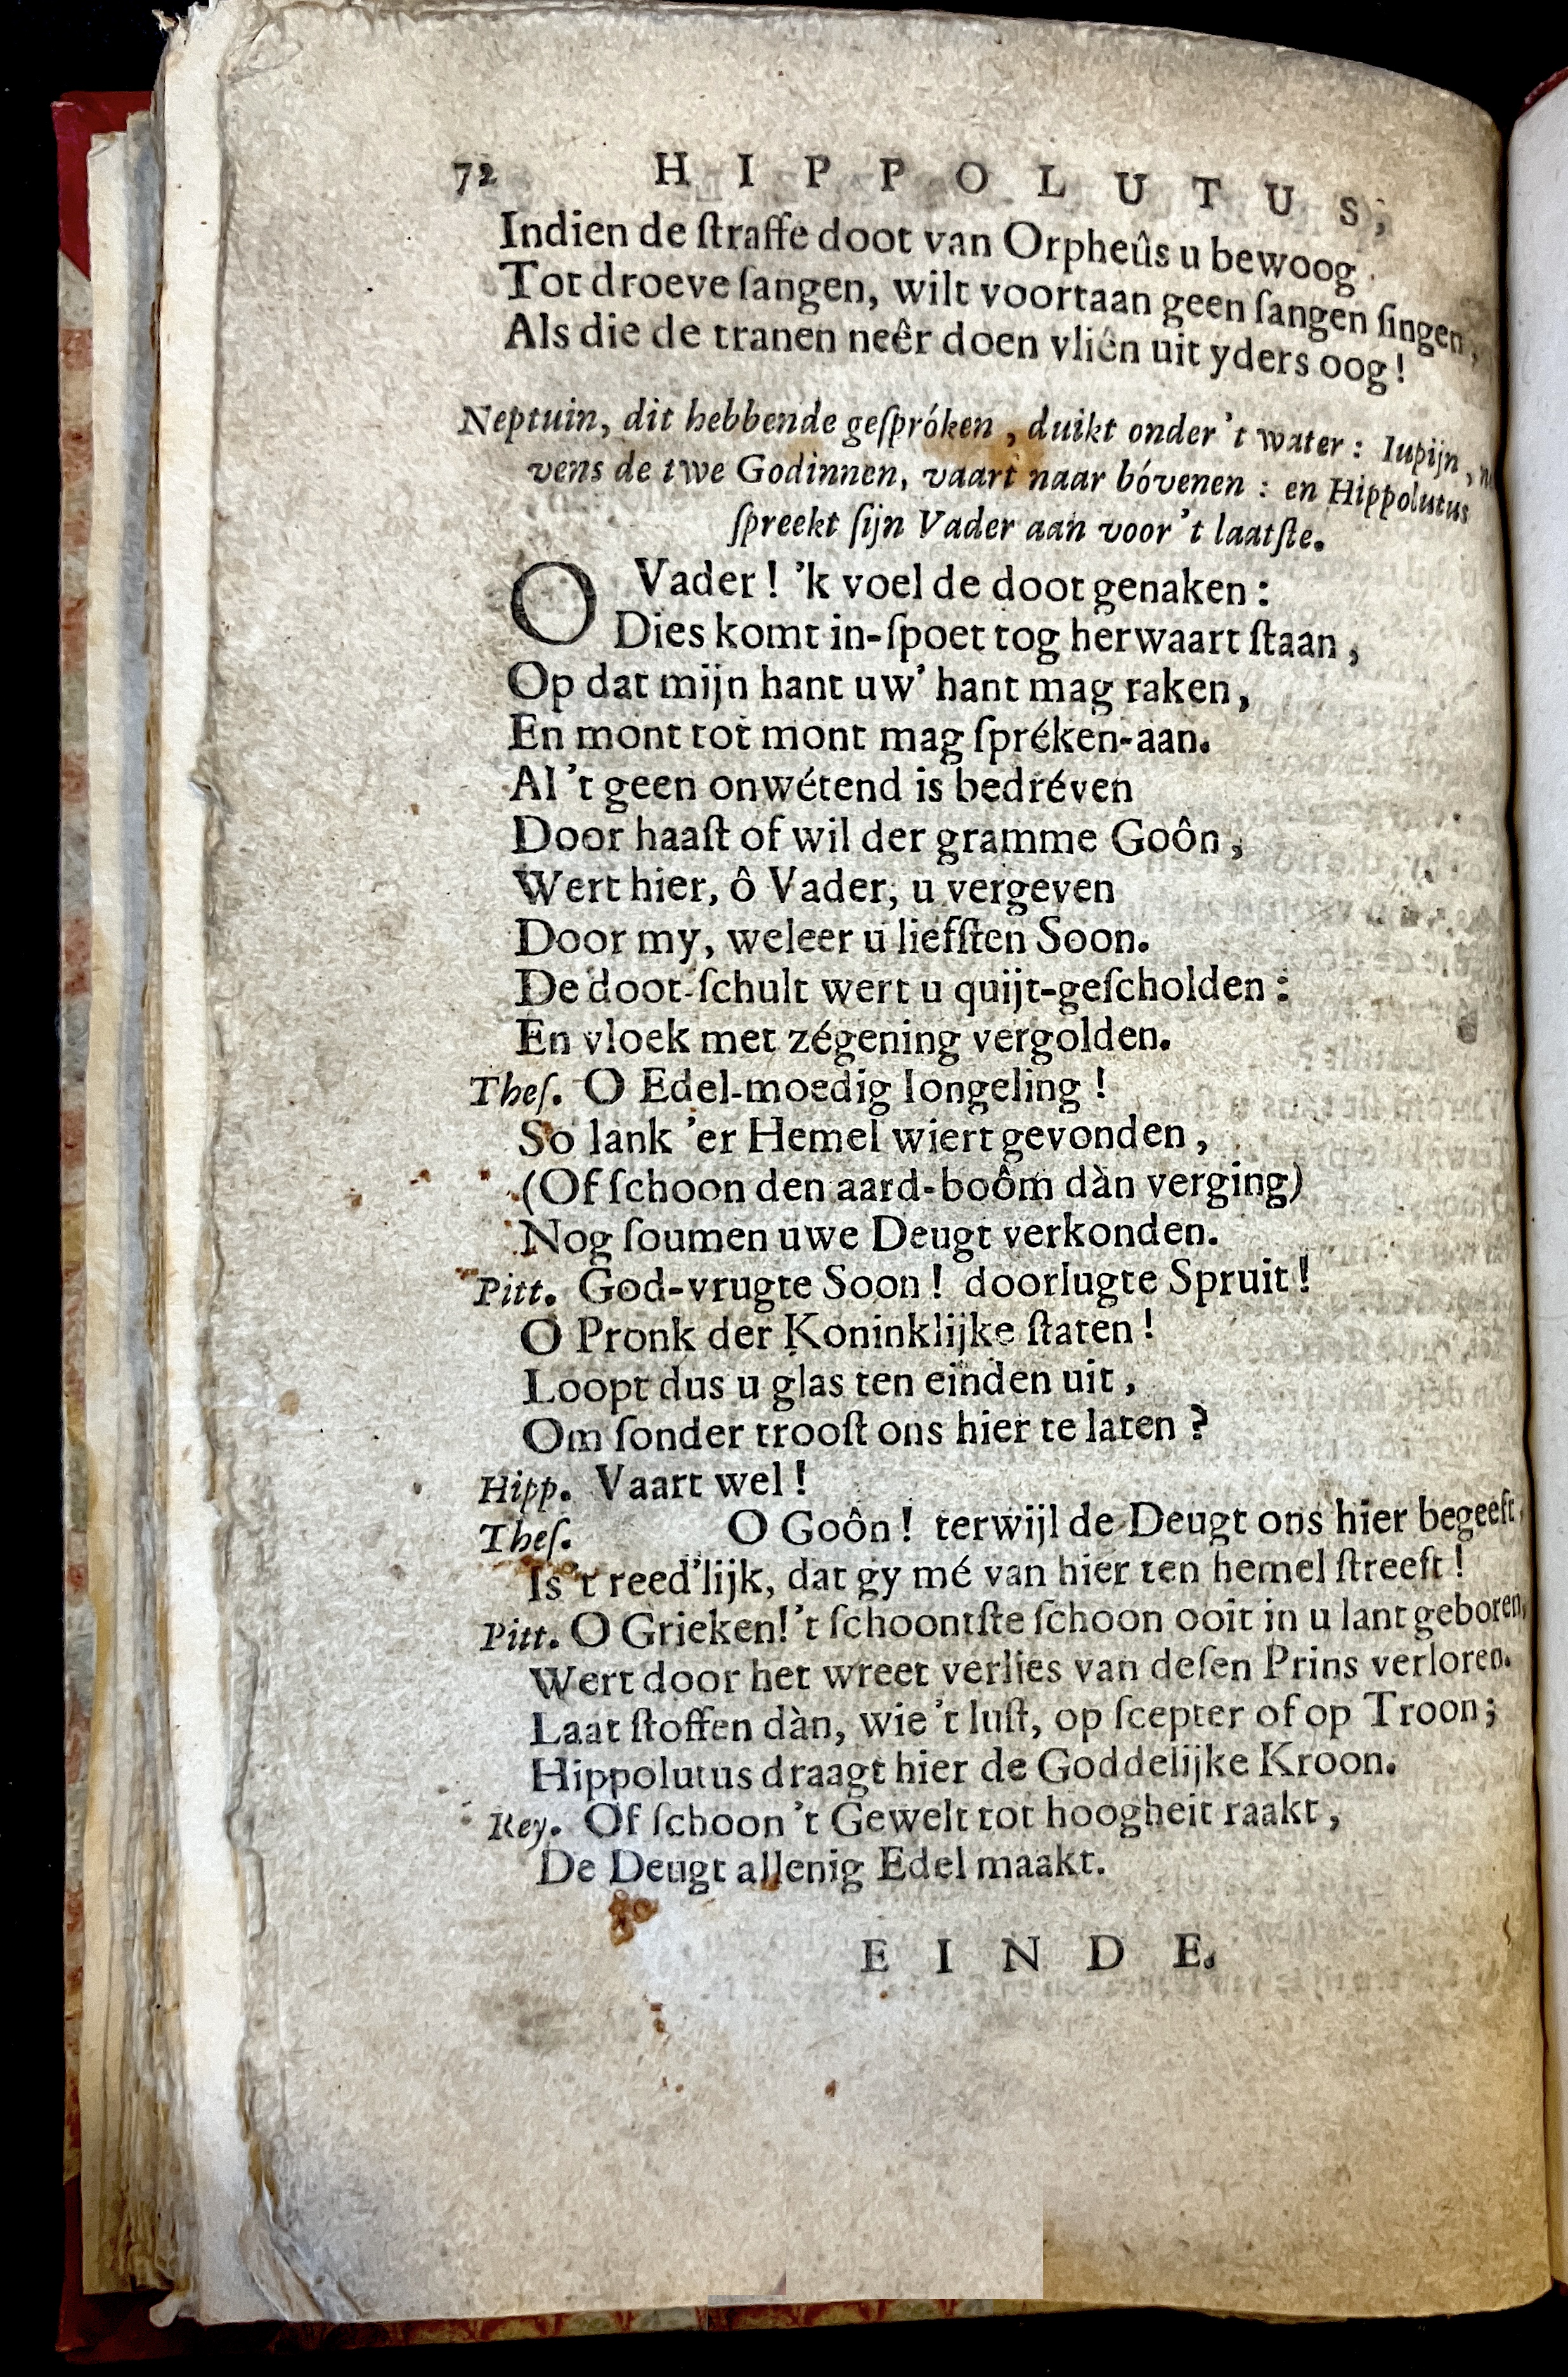 72 HIPPOLUTUS,
Indien de ſtraffe doot van Orpheûs u bewoog
Tot droeve ſangen, wilt voortaan geen ſangen ſingen,
Als die de tranen neêr doen vliên uit yders oog!
Neptuin, dit hebbende geſpróken, duikt onder 't water: Iupijn,
vens de twe Godinnen, vaart naar bóvenen: en Hippolutus
ſpreekt ſijn Vader aan voor 't laatſte.
O Vader! 'k voel de doot genaken:
Dies komt in-ſpoet tog herwaart ſtaan,
Op dat mijn hant uw' hant mag raken,
En mont tot mont mag ſpréken-aan.
Al 't geen onwétend is bedréven
Door haaſt of wil der gramme Goôn,
Wert hier, ô Vader, u vergeven
Door my, weleer u liefſten Soon.
De doot-ſchult wert u quijt-geſcholden:
En vloek met zégening vergolden.
Theſ. O Edel-moedig Iongeling!
So lank 'er Hemel wiert gevonden,
(Of ſchoon den aard-boôm dàn verging)
Nog ſoumen uwe Deugt verkonden.
Pitt. God-vrugte Soon! doorlugte Spruit!
O Pronk der Koninklijke ſtaten!
Loopt dus u glas ten einden uit,
Om ſonder trooſt ons hier te laten?
Hipp. Vaart wel!
Theſ. O Goôn! terwijl de Deugt ons hier begeeft,
Is 't reed'lijk, dat gy mé van hier ten hemel ſtreeft!
Pitt. O Grieken! 't ſchoontſte ſchoon ooit in u lant geboren,
Wert door het wreet verlies van deſen Prins verloren.
Laat ſtoffen dàn, wie 't luſt, op ſcepter of op Troon;
Hippolutus draagt hier de Goddelijke Kroon.
Rey. Of ſchoon 't Gewelt tot hoogheit raakt,
De Deugt allenig Edel maakt.
EINDE.